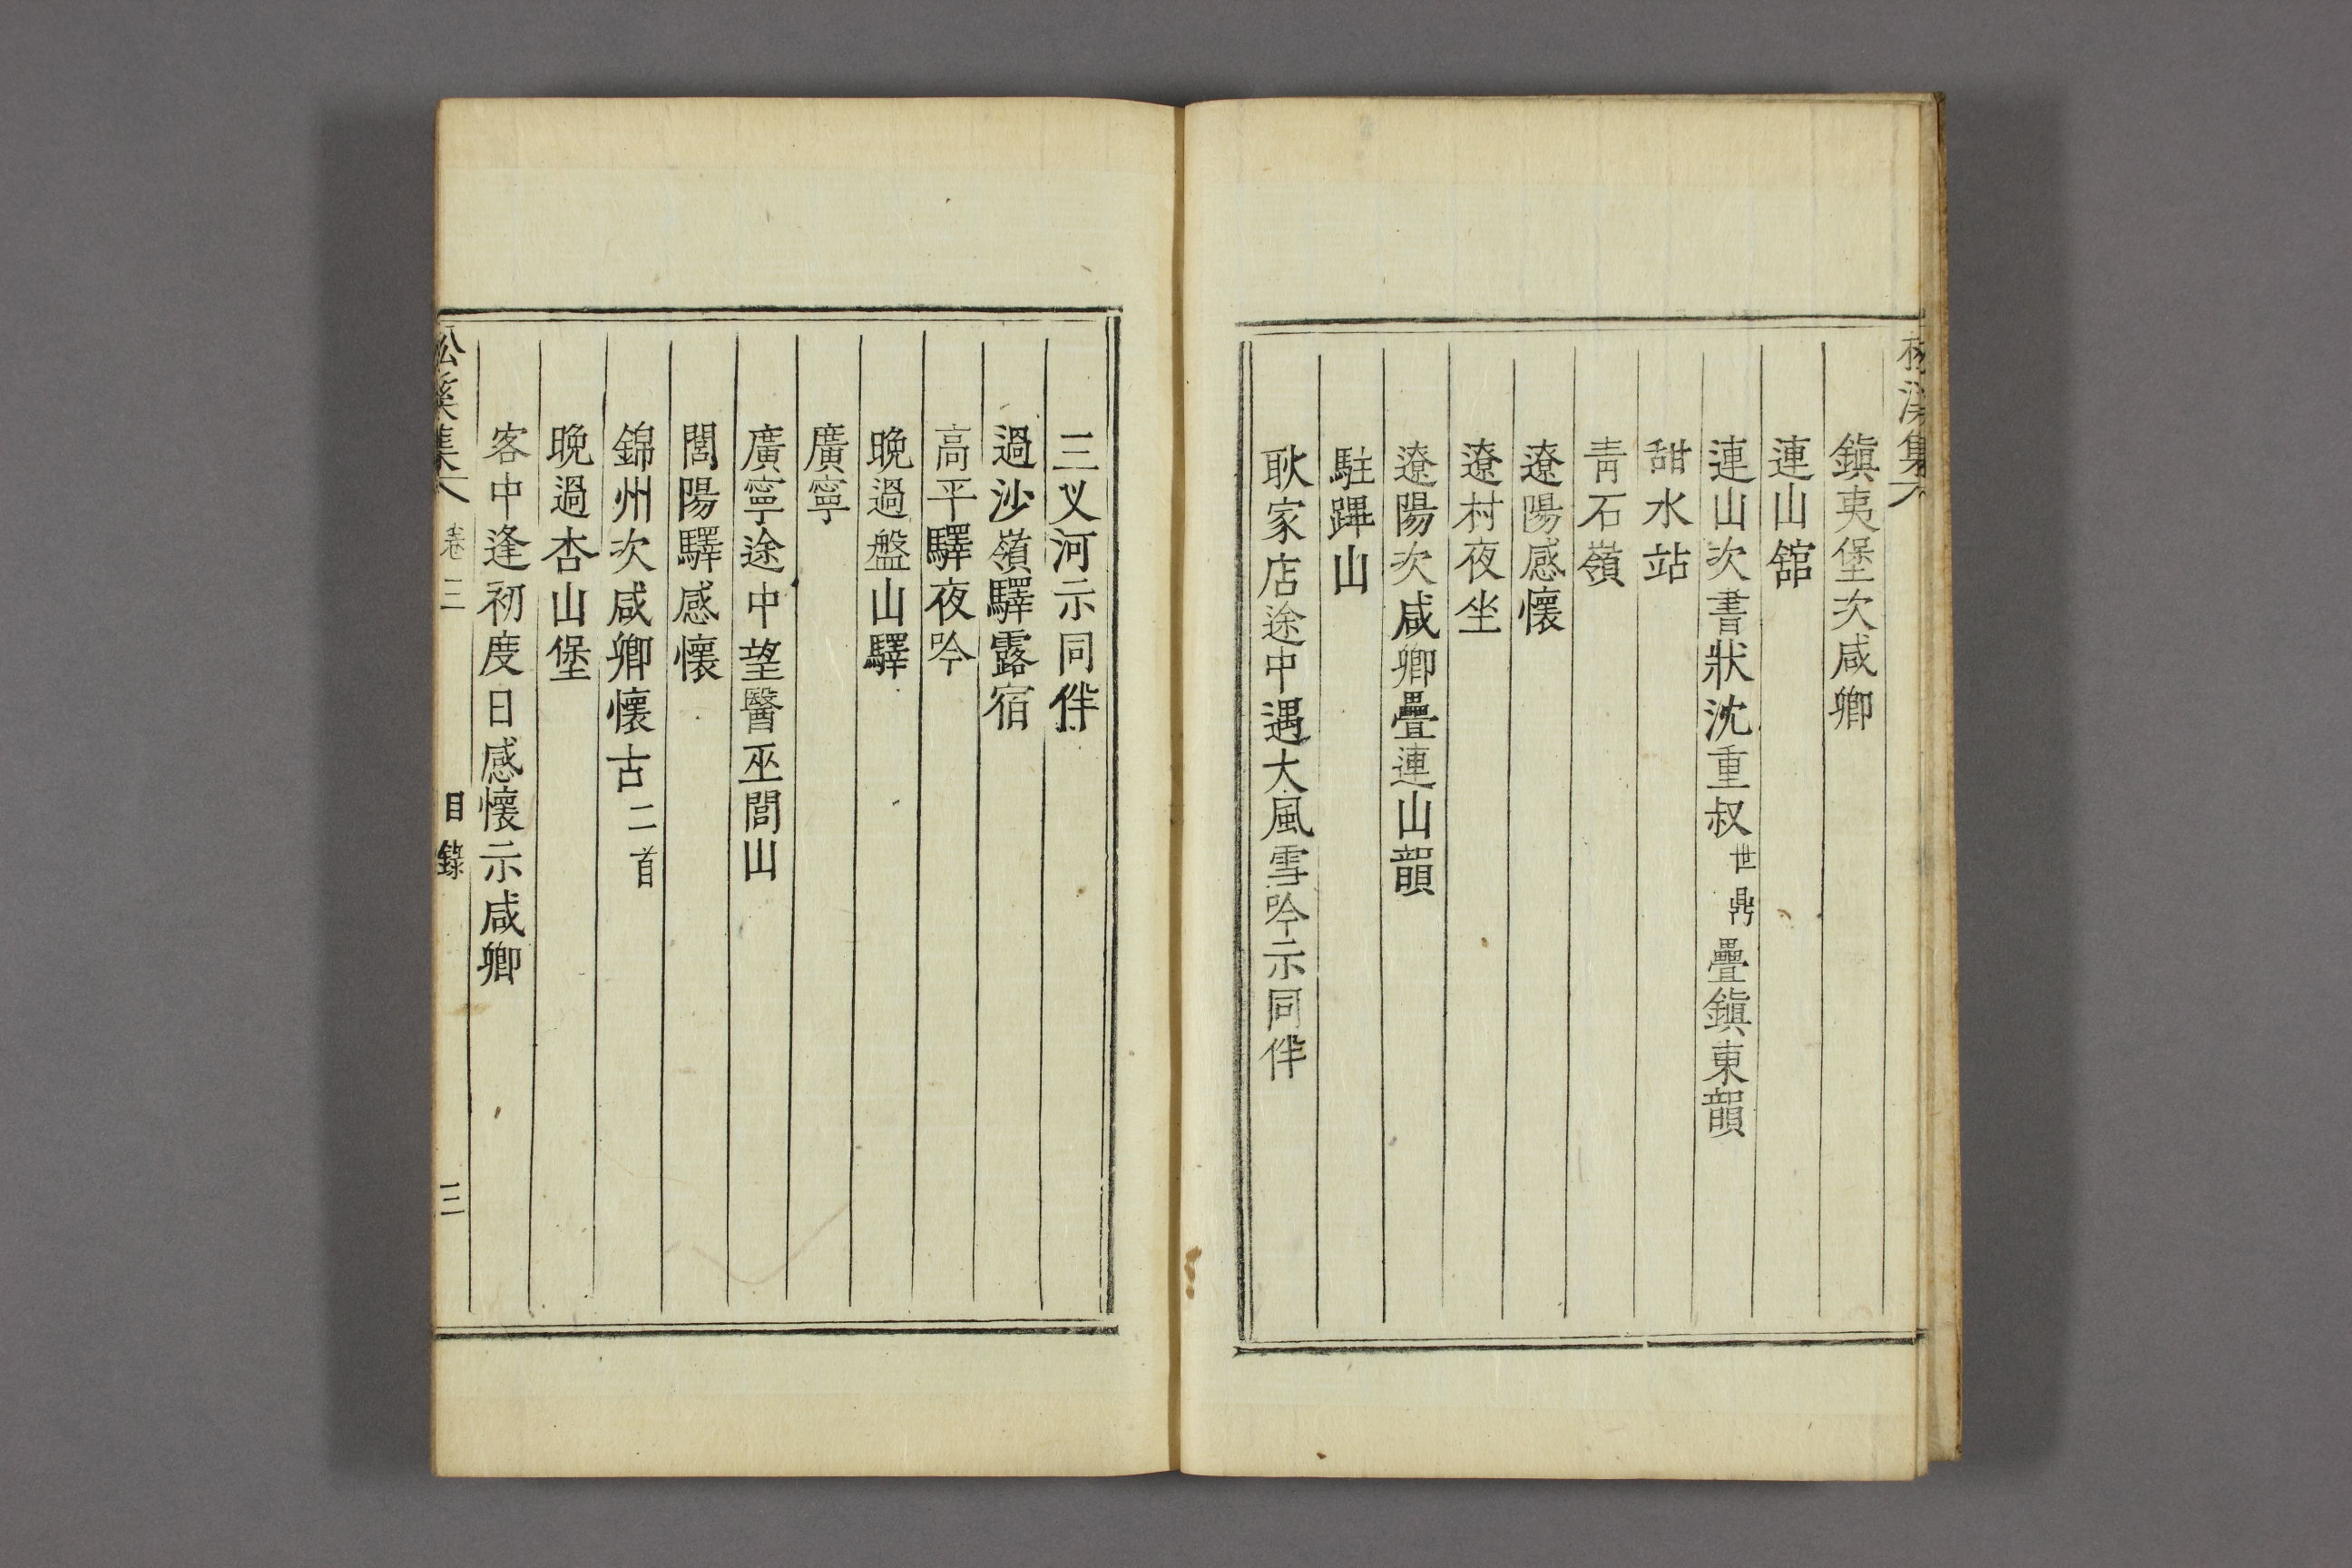 鎭夷堡次咸卿
連山舘
連山次書狀沈重叔世鼎疊鎭東韻
甜水站
靑石嶺
遼陽感懷
遼村夜坐
遼陽次咸卿疊連山韻
駐蹕山
耿家店途中遇大風雪吟示同伴
三义河示同伴
過沙嶺驛露宿
高平驛夜吟
晩過盤山驛
廣寧
廣寧途中望醫巫閭山
閭陽驛感懷
錦州次咸卿懷古二首
晩過杏山堡
客中逢初度日感懷示咸卿
松溪集 卷三 目錄 三